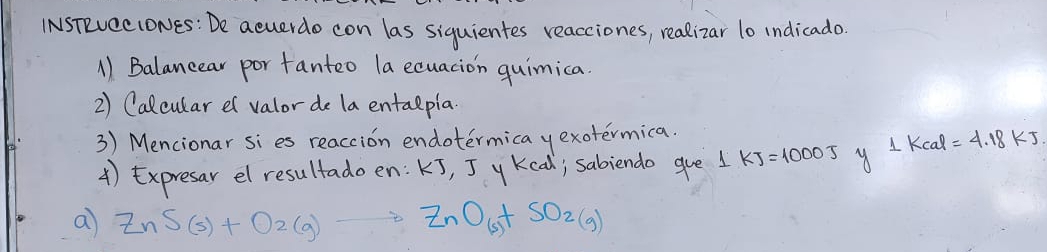 INSTRUCCIONES: De acuerdo con las siguientes reacciones, realizar lo indicado.
1) Balancear por tanteo la ecuación química.
2) Calcular el valor de la entalpía.
3) Mencionar si es reacción endotérmica y exotérmica.
4) Expresar el resultado en: KJ, J y Kcal; sabiendo que 1 KJ = 1000 J y 1 Kcal = 4.18 KJ.
a) ZnS(s) + O2(g) → ZnO(s) + SO2(g)